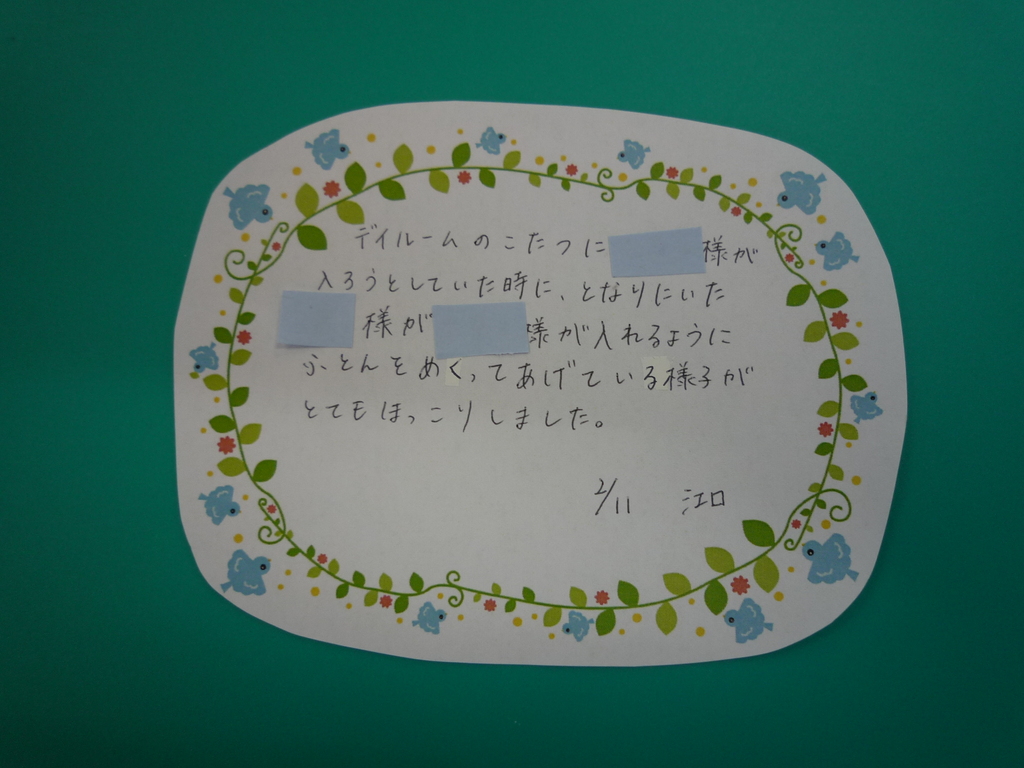 デイルームのこたつに 様が
入ろうとしていた時に、となりにいた
様が 様が入れるように
ふとんをめくってあげている様子が
とてもほっこりしました。
2/11 江口